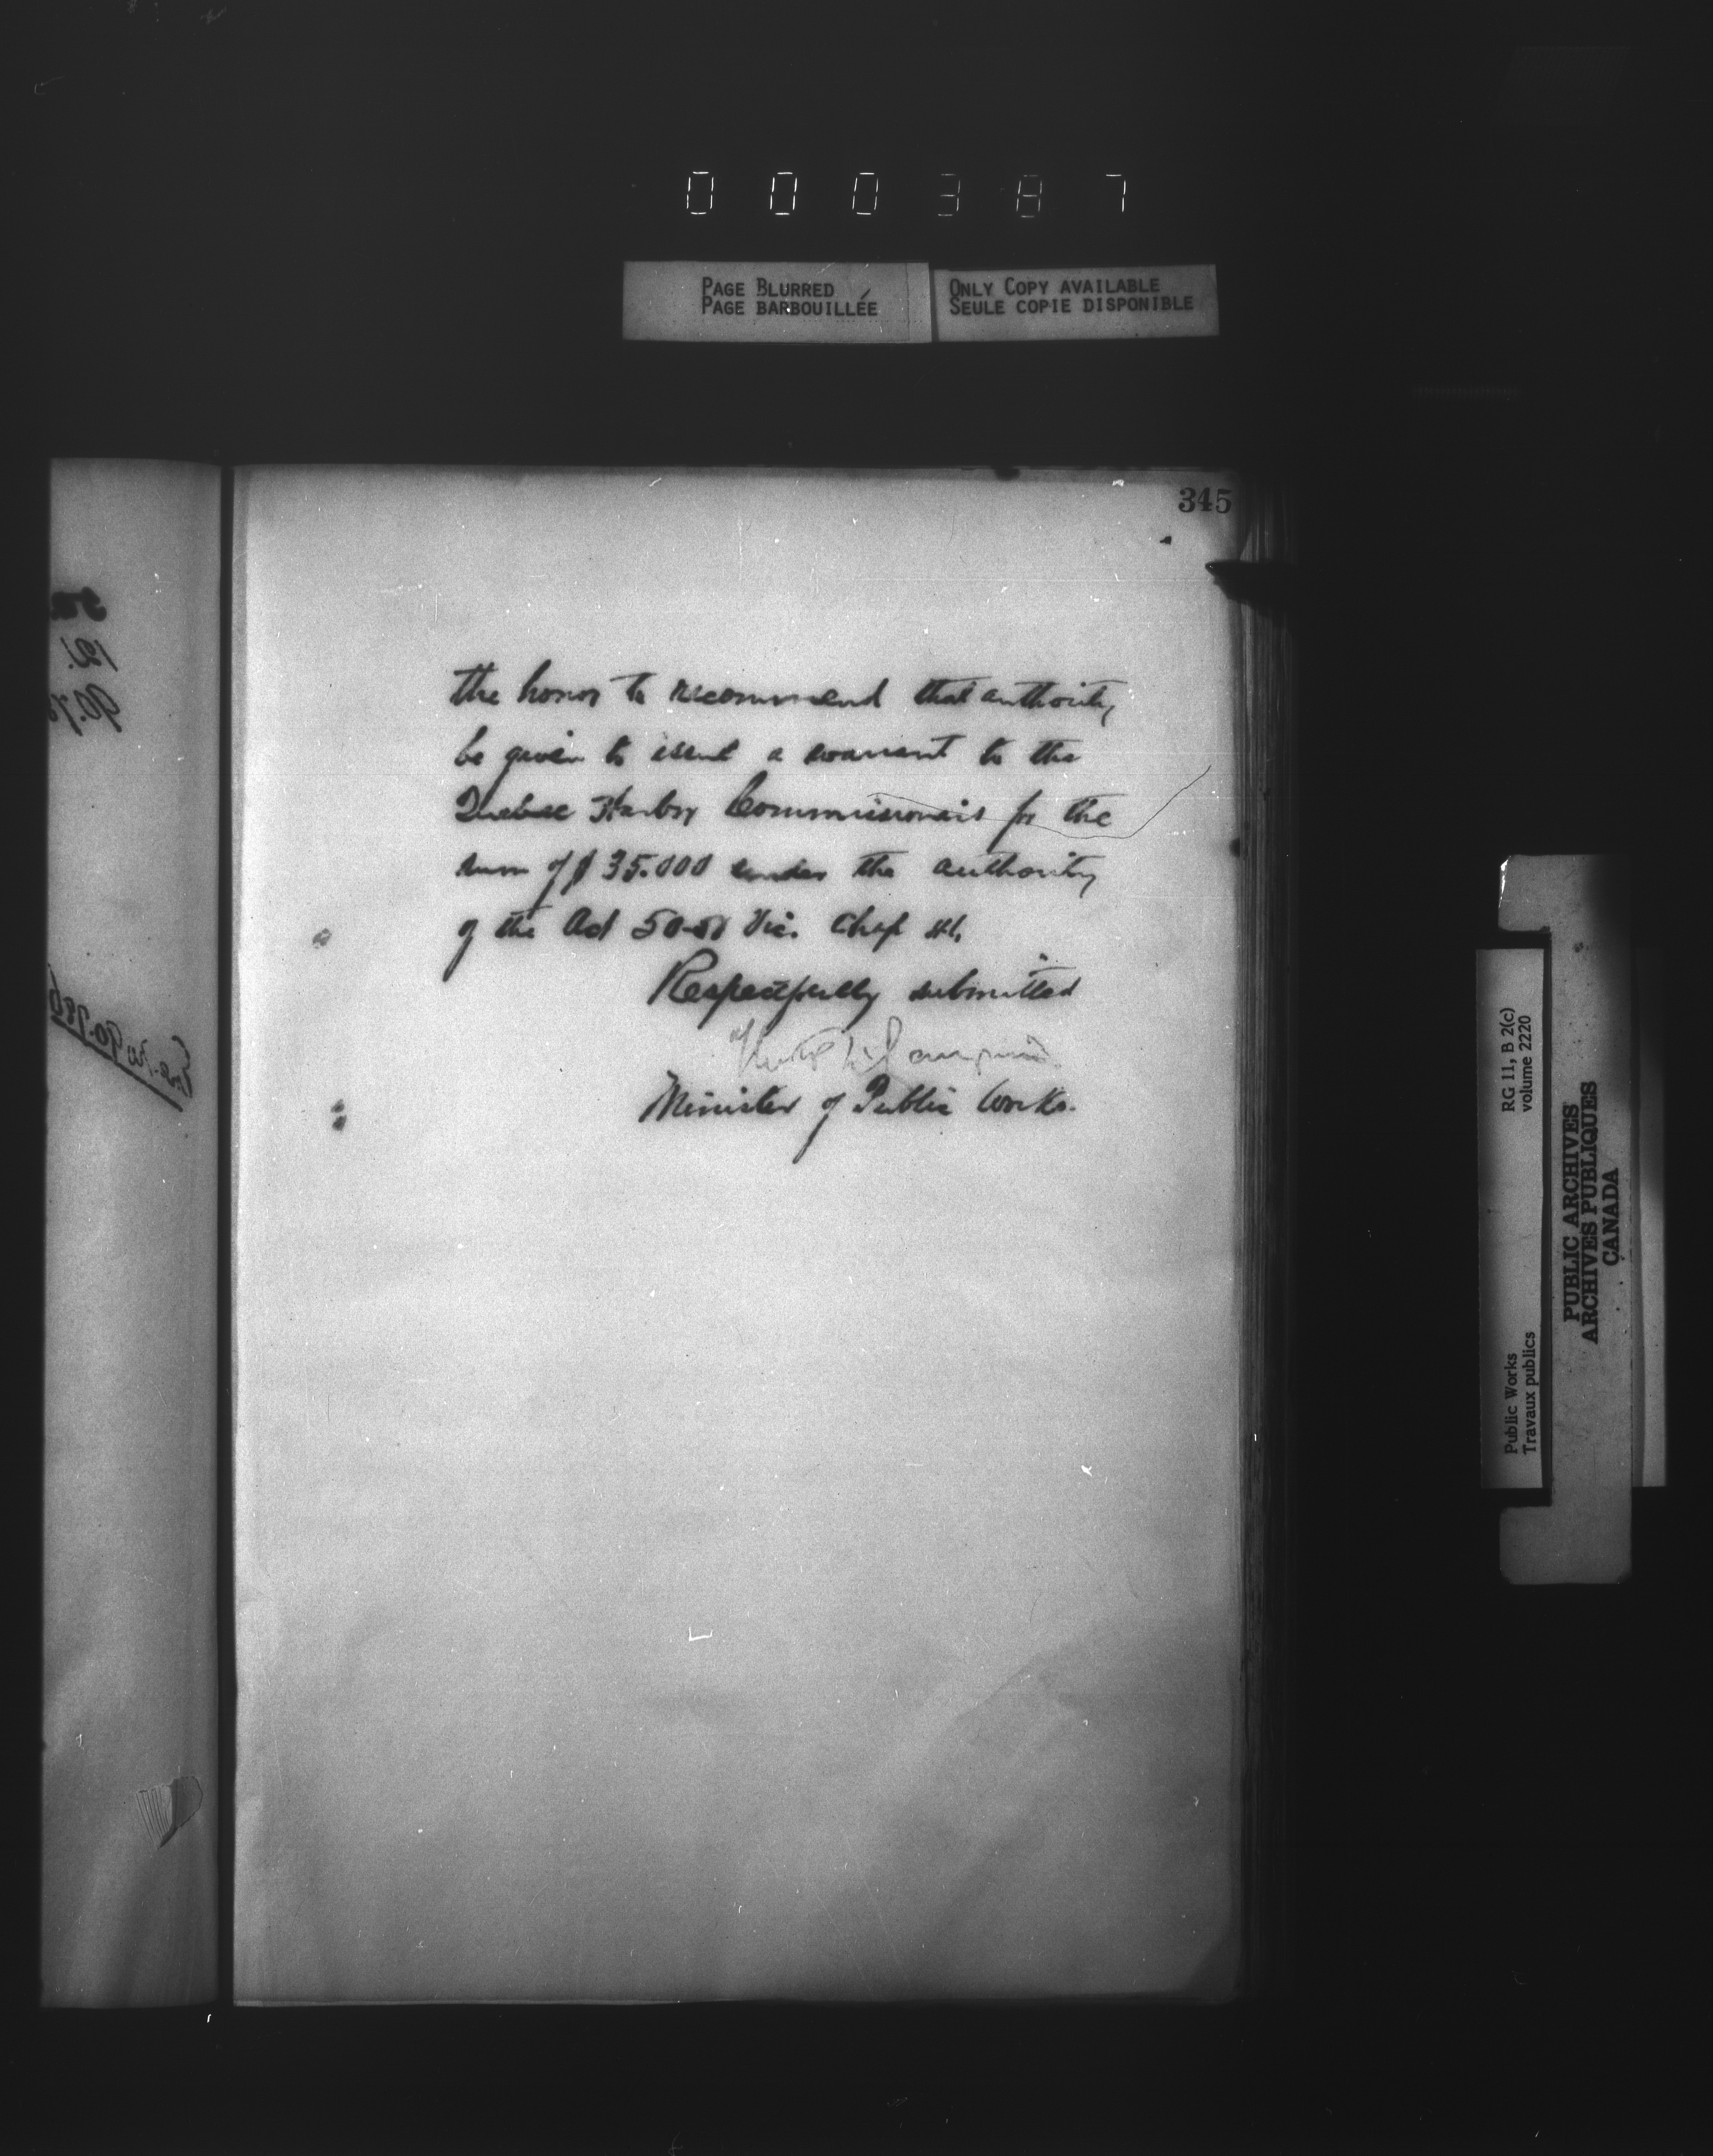 000387
PAGE BLURRED
PAGE BARBOUILLÉE
ONLY COPY AVAILABLE
SEULE COPIE DISPONIBLE
345
the honor to recommend that authority
be given to issue a warrant to the
Quebec Harbor Commissioners for the
sum of $35.000 under the authority
of the Act 50-51 Vic. Chap 41.
Respectfully submitted
Minister of Public Works.
RG 11, B 2(c)
volume 2220
Public Works
Travaux publics
PUBLIC ARCHIVES
ARCHIVES PUBLIQUES
CANADA